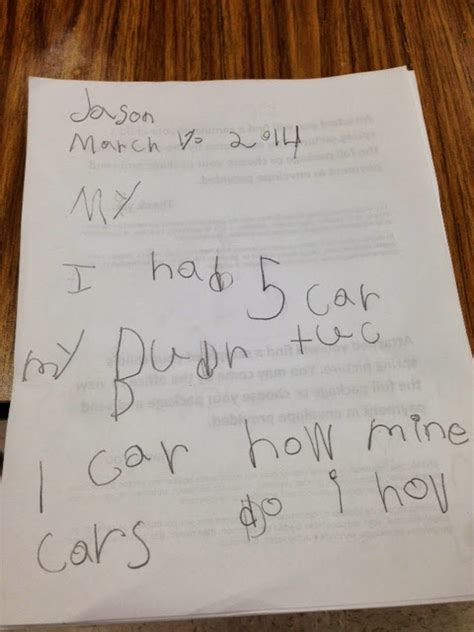 Jason
March 10 2014
MY
I had 5 car
my Budr tuc
1 car how mine
cars do i hov